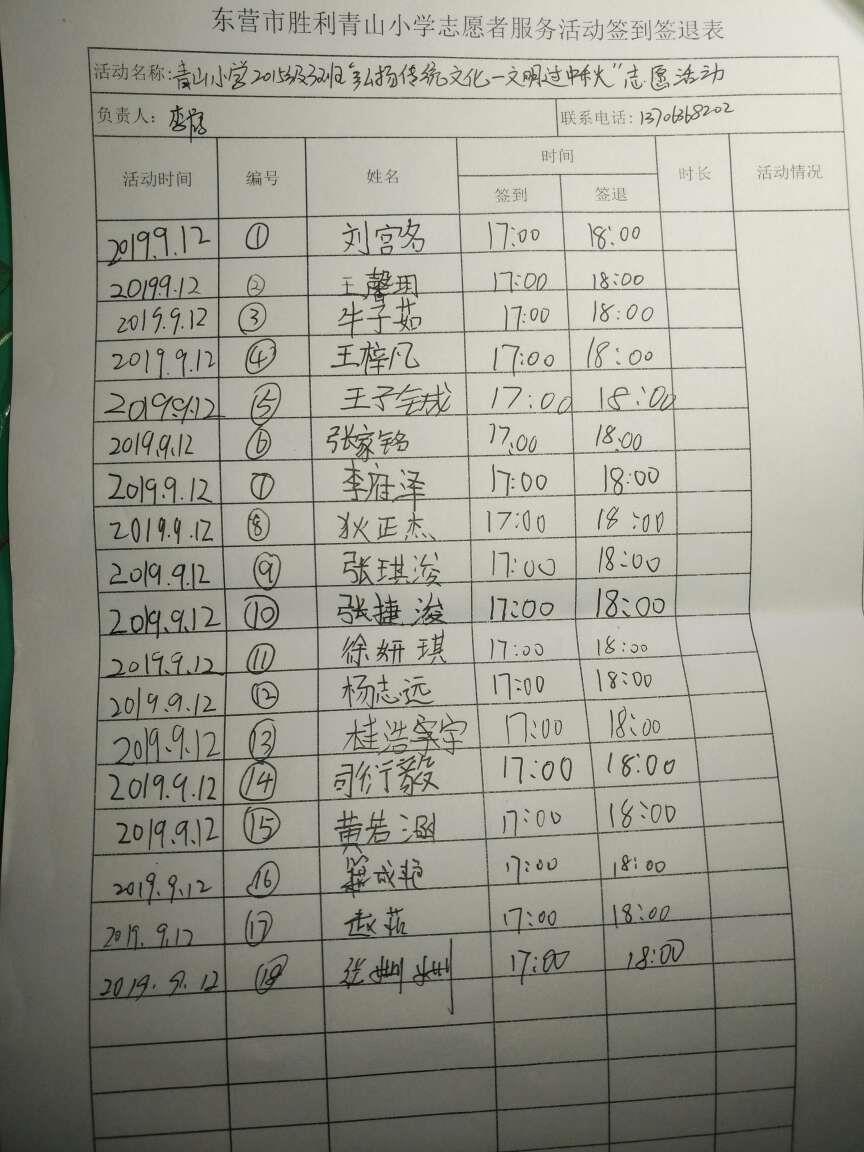 东营市胜利青山小学志愿者服务活动签到签退表
活动名称:青山小学2015级3班"弘扬传统文化—文明过中秋"志愿活动
负责人: 李 联系电话:13706368202
活动时间 编号 姓名 时间 时长 活动情况
签到 签退
2019.9.12 ① 刘宫名 17:00 18:00
2019.9.12 ② 王馨玥 17:00 18:00
2019.9.12 ③ 牛子茹 17:00 18:00
2019.9.12 ④ 王梓凡 17:00 18:00
2019.9.12 ⑤ 王子铖 17:00 18:00
2019.9.12 ⑥ 张家铭 17:00 18:00
2019.9.12 ⑦ 李府泽 17:00 18:00
2019.9.12 ⑧ 狄正杰 17:00 18:00
2019.9.12 ⑨ 张琪浚 17:00 18:00
2019.9.12 ⑩ 张捷浚 17:00 18:00
2019.9.12 ⑪ 徐妍琪 17:00 18:00
2019.9.12 ⑫ 杨志远 17:00 18:00
2019.9.12 ⑬ 桂浩宇 17:00 18:00
2019.9.12 ⑭ 司衍毅 17:00 18:00
2019.9.12 ⑮ 黄若涵 17:00 18:00
2019.9.12 ⑯ 17:00 18:00
2019.9.12 ⑰ 赵茹 17:00 18:00
2019.9.12 ⑱ 17:00 18:00